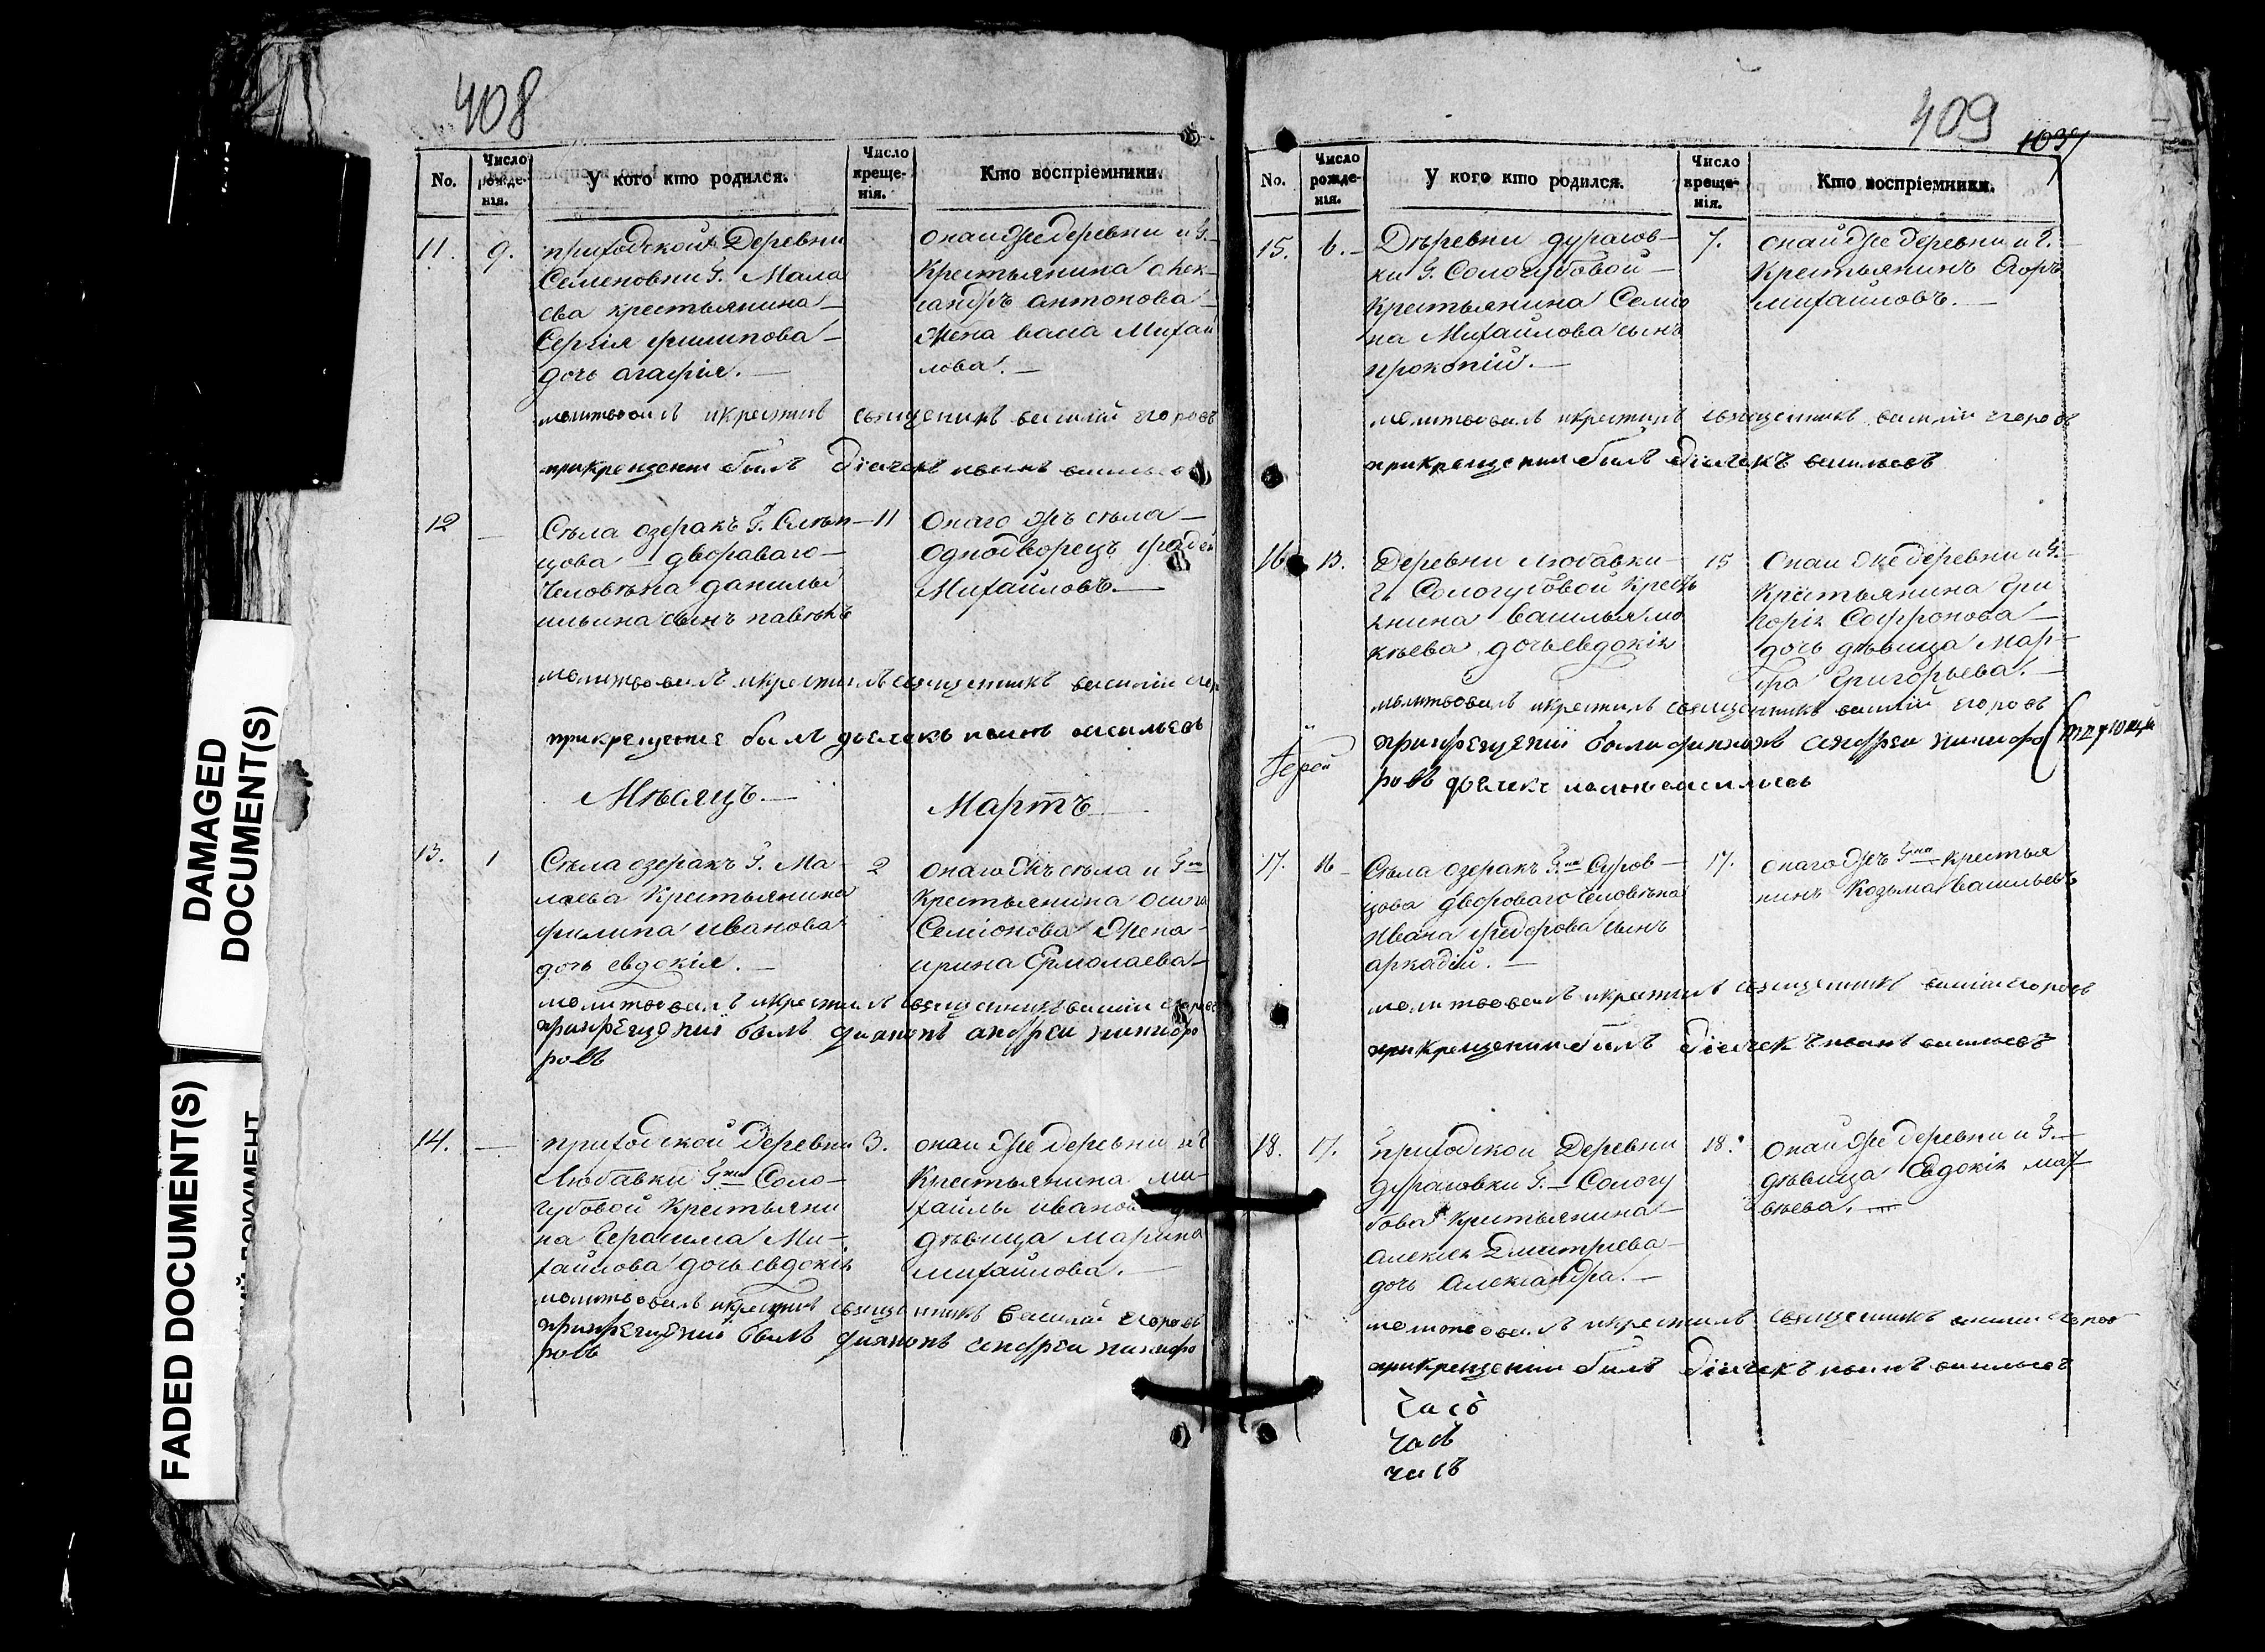 408
No.
Число рожде-нія.
У кого кто родился.
Число креще-нія.
Кто воспріемники.
11. 9.
приходской Деревни
Семеновки Г. Мала
ева крестьянина
Сергія филипова
дочь агафія.
онай же деревни и Г.
Крестьянина алек
сандръ антонова
жена васа Михай
лова.
молитвовалъ икрестилъ священикъ василий егоровъ
прикрещении былъ дьячекъ иванъ василье
12 —
Съла озеракъ Г. Слъп
цова двораваго
Человъка данилы
ильина сынъ павелъ
11
Онаго жъ съла
Однодворецъ фадей
Михайловъ.
молитвовалъ икрестилъ священникъ василии его
прикрещение былъ дьячекъ иванъ васильевъ
Мъсяцъ.
Мартъ
13. 1
Съла озеракъ Г. Ма
лаева Крестьянина
филипа иванова
дочь евдокія.
2
онаго жъ съла и Гна
Крестьянина осипа
Семіонова жена
ирина Ермолаева
молитвовалъ икрестилъ священникъ василии егоровъ
прикрещении былъ диаконъ андреи никифо
ровъ
14. —
приходской Деревни
Любавки Гжи Соло
губовой Крестьяни
на Герасима Ми
хайлова дочь евдокія
3.
онаи же деревни и Г
Крестьянина ми
хайлы иванов
дъвица марина
михайлова.
молитвовалъ икрестилъ священникъ василии егоровъ
прикрещении былъ диаконъ андреи никифо
ровъ
409
1037
No.
Число рожде-нія.
У кого кто родился.
Число креще-нія.
Кто воспріемники.
15. 6.
Дъревни дурасов
ки Г. Сологубовой
Крестьянина Семіо
на Михайлова сынъ
прокопій.
7.
онай же деревни и Г.
Крестьянинъ Егоръ
михайловъ.
молитвовалъ икрестилъ священникъ василии егоровъ
прикрещении былъ дьячекъ васильевъ
16 13.
Деревни любавки
Г. Сологубовой Кресть
янина василья мо
къева дочь евдокія
15
Онаи же деревни и Г.
Крестьянина Гри
горія Софронова
дочь дъвица Мар
фа Григорьева.
молитвовалъ икрестилъ священникъ василии егоровъ
прикрещении были диаконъ андреи никифо
ровъ дьячекъ иванъ васильевъ
17. 16
Съла озеракъ Гна Суров
цова двороваго Человъка
Ивана федорова сынъ
аркадій.
17.
онаго жъ Гна крестья
нинъ Козьма васильевъ
молитвовалъ икрестилъ священникъ василии егоровъ
прикрещении былъ дьячекъ иванъ васильевъ
18. 17.
приходскои Деревни
дурасовки Г. Сологу
бова Крестьянина
алексея Дмитриева
дочь александра.
18.
онай же деревни и Г.
дъвица Евдокія мат
въева.
молитвовалъ икрестилъ священникъ василии егоров
прикрещении былъ дьячекъ иванъ васильевъ
часъ
часъ
часъ
DAMAGED DOCUMENT(S)
FADED DOCUMENT(S)